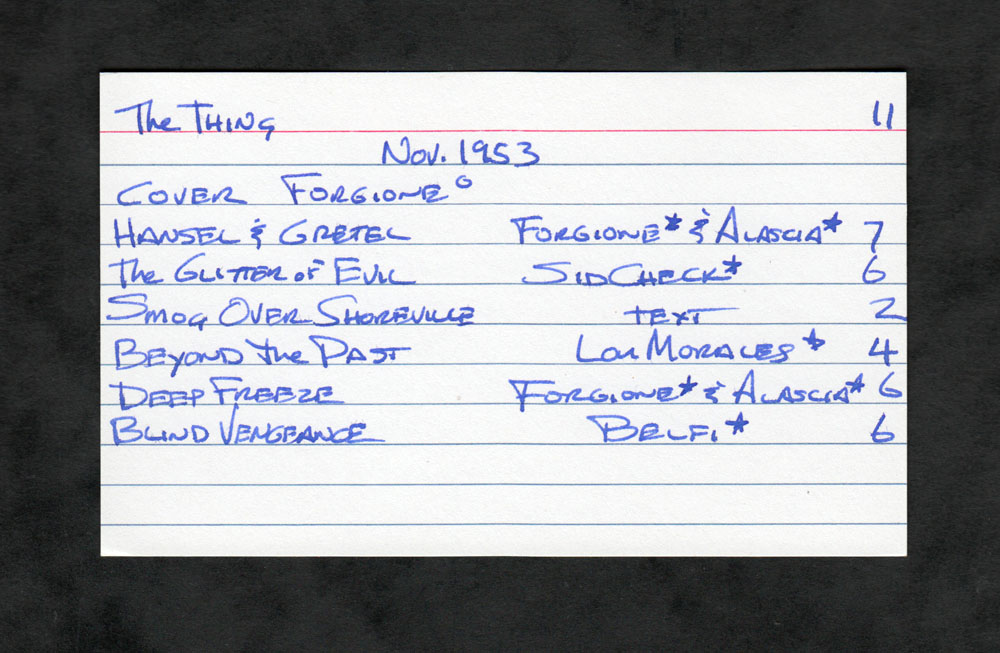 The THING 11
Nov. 1953
COVER FORGIONE°
HANSEL & GRETEL FORGIONE* & ALASCIA* 7
The GLITTER OF EVIL SID CHECK* 6
SMOG OVER SHOREVILLE TEXT 2
BEYOND the PAST LOU MORALES* 4
DEEP FREEZE FORGIONE* & ALASCIA* 6
BLIND VENGEANCE BELFI* 6